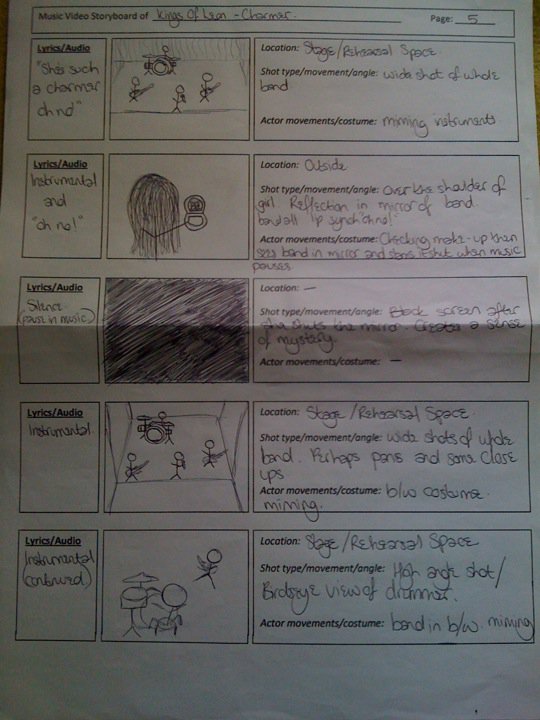 Music Video Storyboard of Kings Of Leon - Charmer. Page: 5
Lyrics/Audio
"She's such
a charmer
oh no"
Location: Stage/Rehearsal Space
Shot type/movement/angle: wide shot of whole
band
Actor movements/costume: miming instruments
Lyrics/Audio
Instrumental
and
"oh no!"
Location: Outside
Shot type/movement/angle: Over the shoulder of
girl. Reflection in mirror of band.
band all lip synch "oh no!"
Actor movements/costume: Checking make-up then
sees band in mirror and slams it shut when music
pauses.
Lyrics/Audio
Silence
(pause in music)
Location: —
Shot type/movement/angle: Black screen after
she shuts the mirror. Creates a sense
of mystery.
Actor movements/costume: —
Lyrics/Audio
Instrumental.
Location: Stage/Rehearsal Space.
Shot type/movement/angle: wide shots of whole
band. Perhaps pans and some close
ups
Actor movements/costume: b/w costume.
miming.
Lyrics/Audio
Instrumental
(continued)
Location: Stage/Rehearsal Space
Shot type/movement/angle: High angle shot/
Birdseye view of drummer.
Actor movements/costume: band in b/w. miming